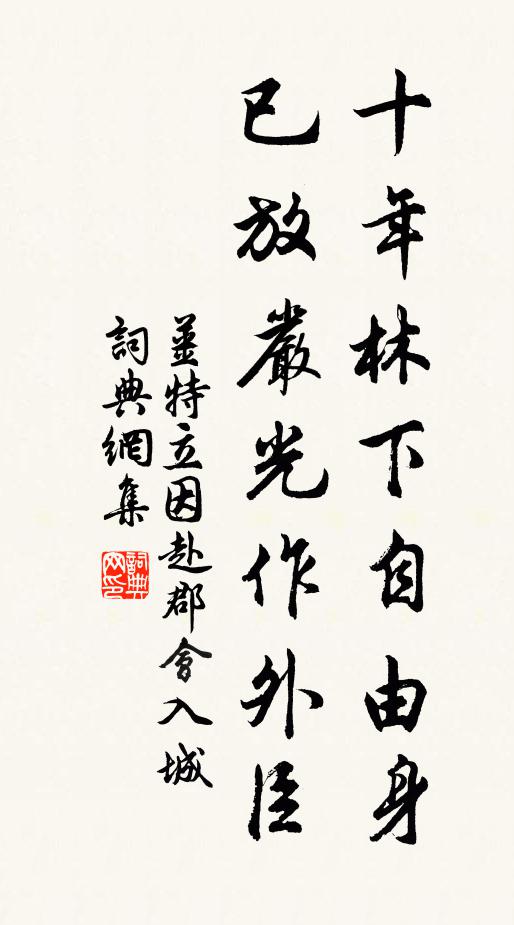 十年林下自由身
已放嚴光作外臣
姜特立因赴郡會入城
詞典網集
詞典网印